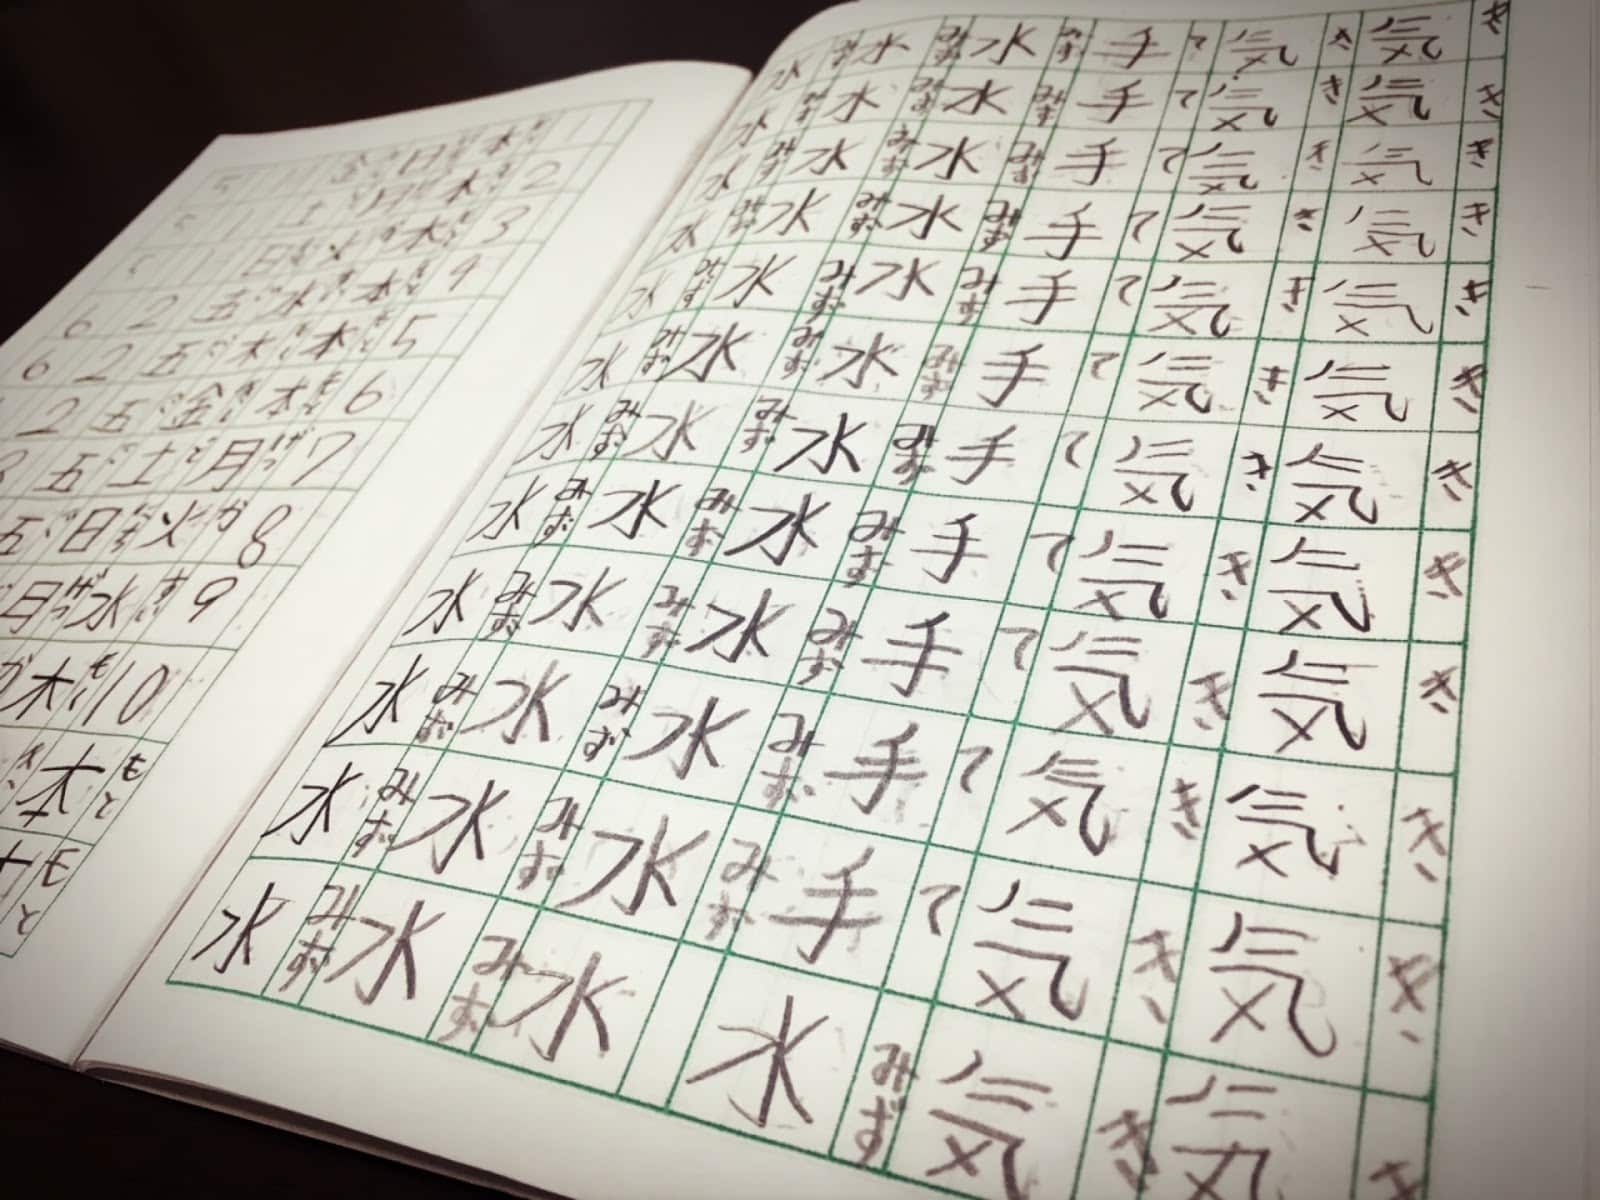 きききききききききききき
気気気気気気気気気気気気
きききききききききききき
気気気気気気気気気気気気
てててててててててててみず
手手手手手手手手手手手水
みずみずみずみずみずみずみずみずみずみずみず
水水水水水水水水水水水水
みずみずみずみずみずみずみずみずみずみずみずみず
水水水水水水水水水水水水
みずみずみずみずみずみずみずみずみずみずみずみず
水水水水水水水水水水水水
1 2 3 4 5 6 7 8 9 10 本
月火水木
金土日月
五五五五
2 2 2
6 6